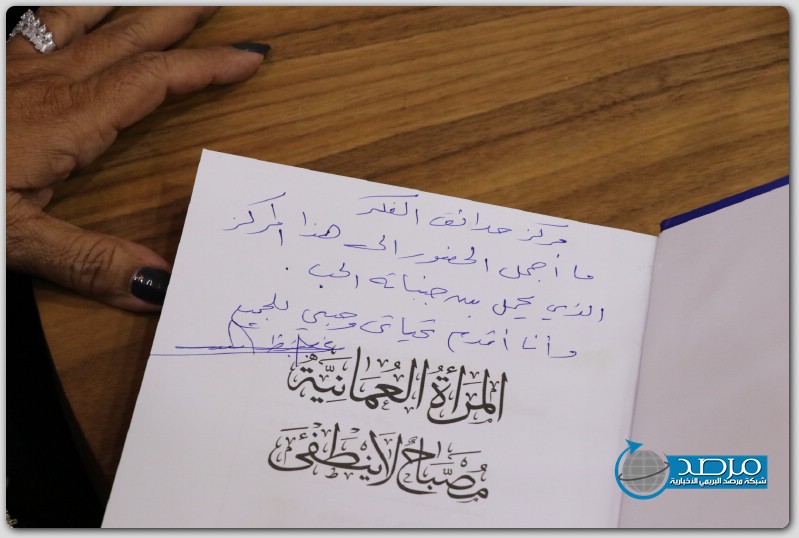 مركز حدائق الفكر
ما أجمل الحضور الى هذا المركز
الذي يحمل بين جنباته الحب .
وأنا أقدم تحياتي وحبي للجميع
المَرأةُ العُمانيَّة
مِصْبَاحٌ لاينطَفئ
مرصد
شبكة مرصد البريمي الاخبارية